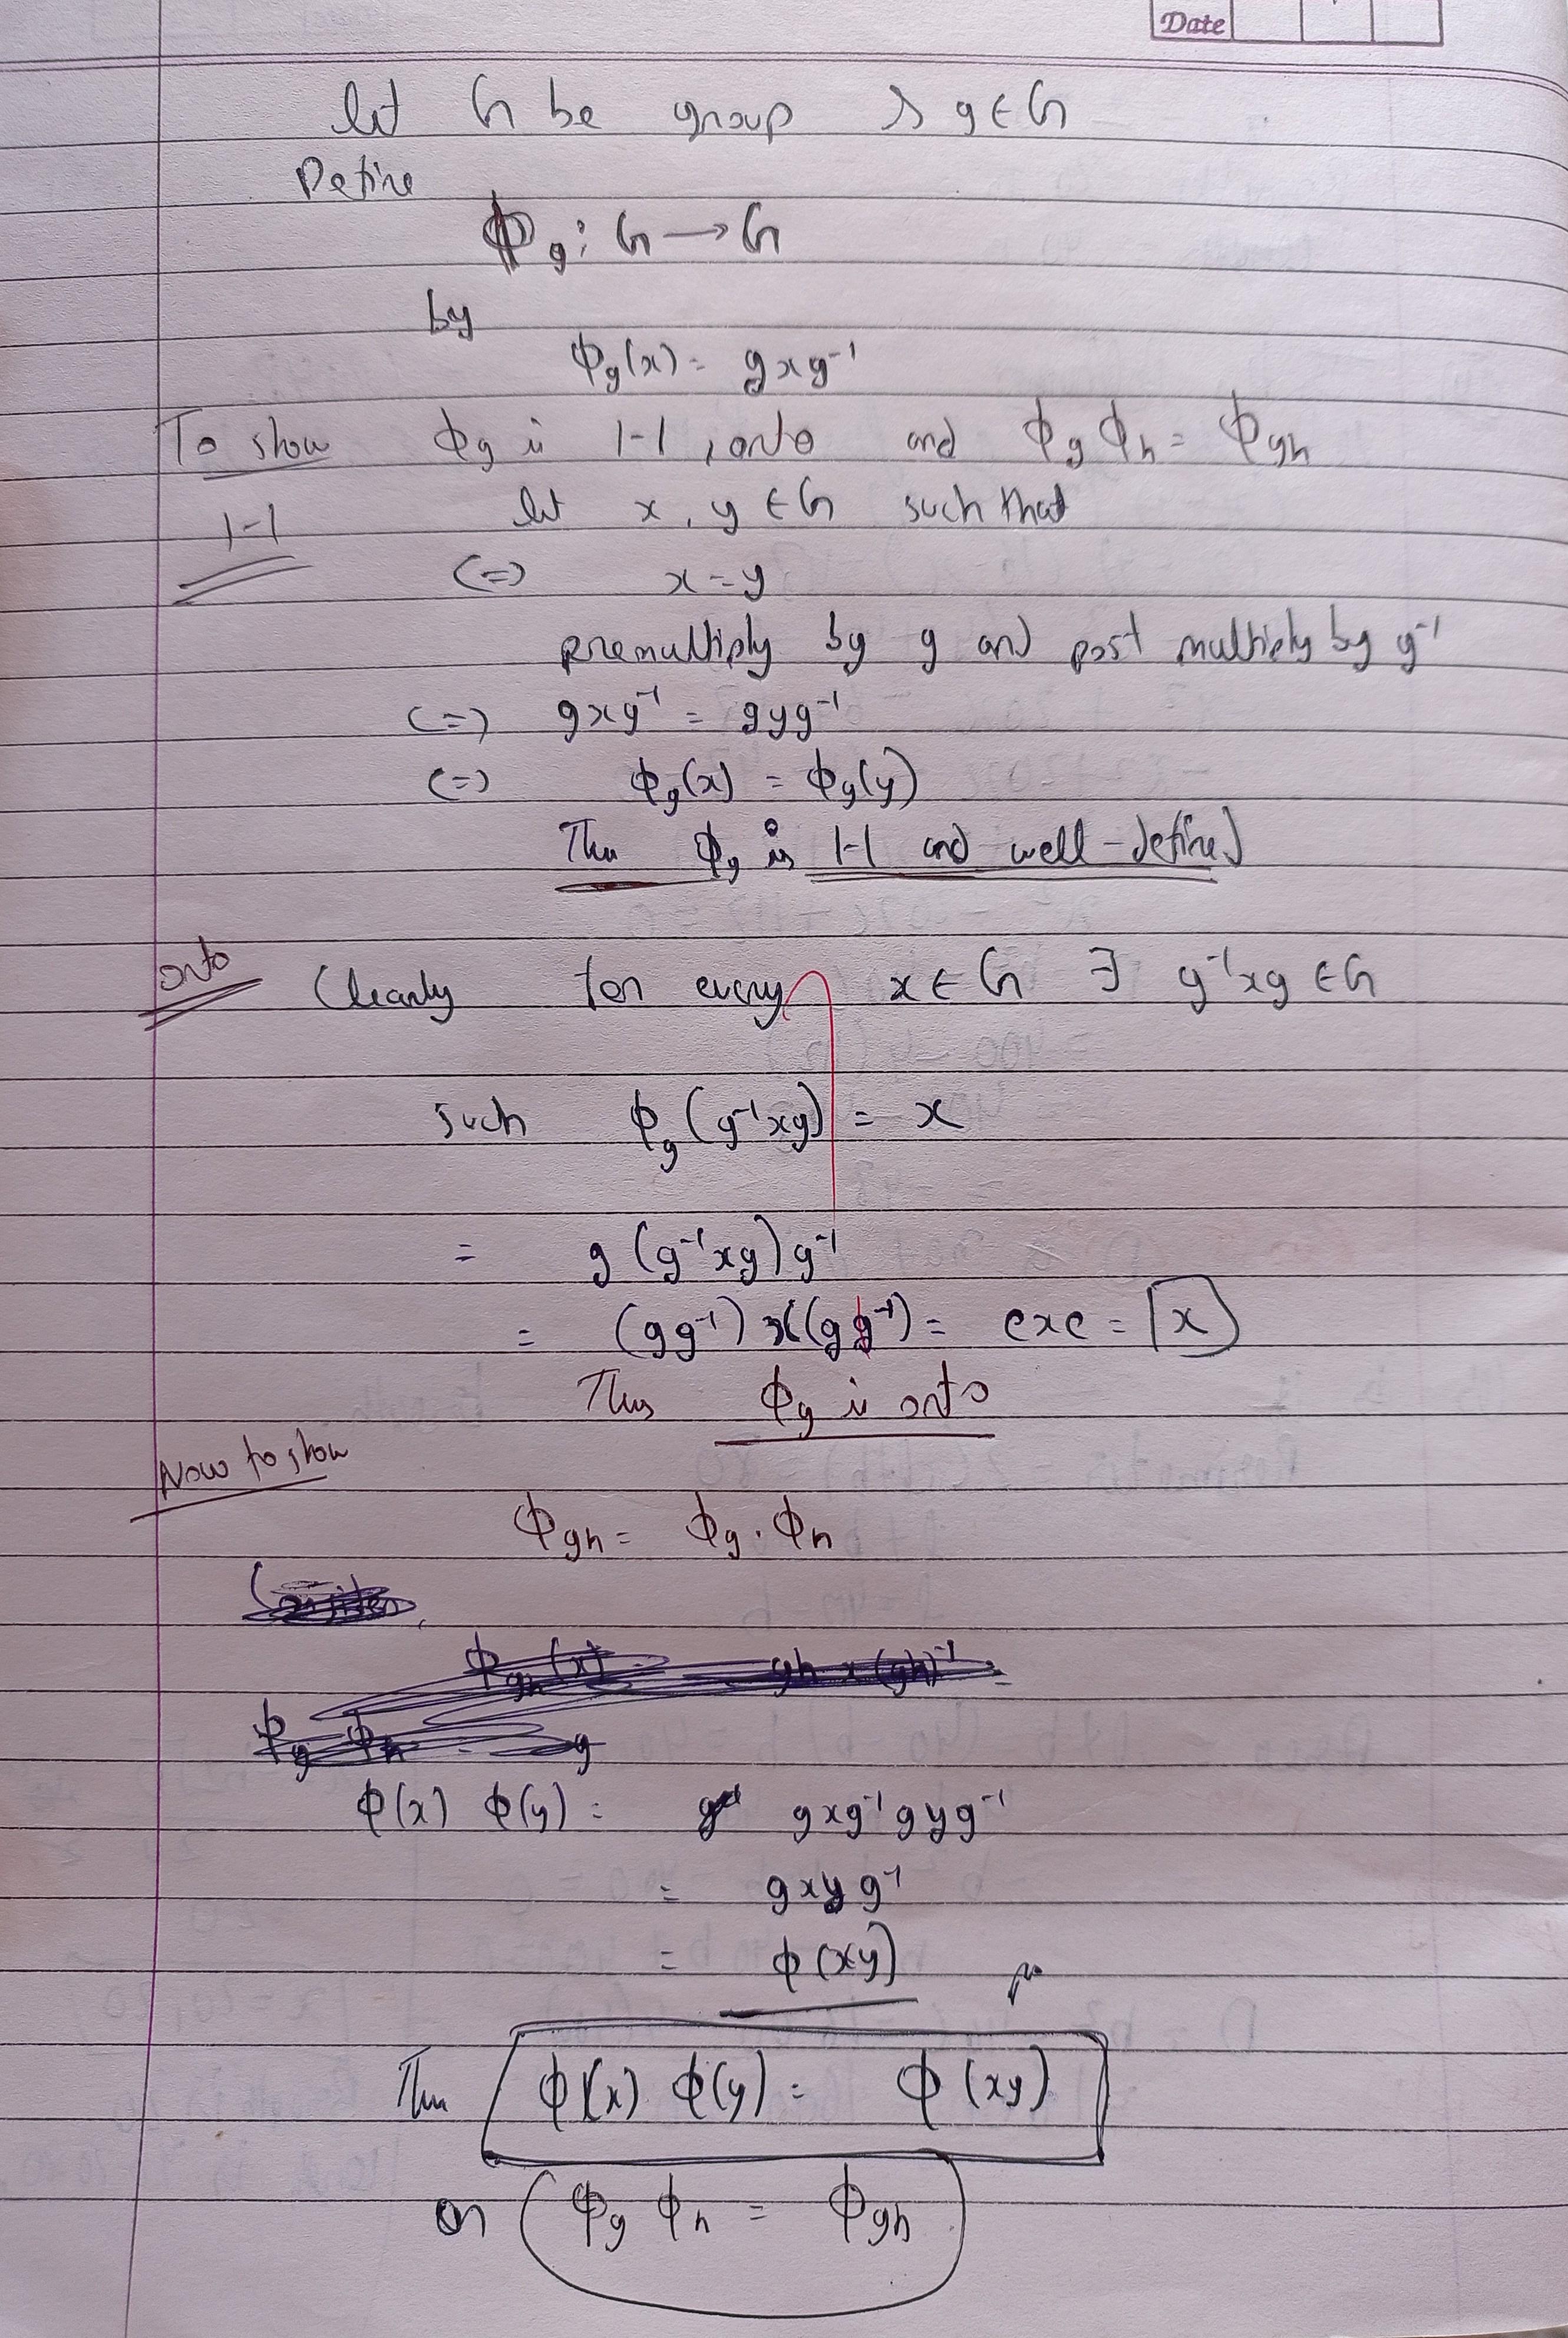 Date
let G be group & g ∈ G
Define
Φg : G → G
by
Φg(x) = gxg⁻¹
To show Φg is 1-1, onto and Φg Φh = Φgh
1-1 let x, y ∈ G such that
(=) x = y
premultiply by g and post multiply by g⁻¹
(=) gxg⁻¹ = gyg⁻¹
(=) Φg(x) = Φg(y)
Thu Φg is 1-1 and well-defined
onto Clearly for every x ∈ G ∃ g⁻¹xg ∈ G
such Φg(g⁻¹xg) = x
= g(g⁻¹xg)g⁻¹
= (gg⁻¹)x(gg⁻¹) = exe = x
Thus Φg is onto
Now to show
Φgh = Φg · Φh
Φgh(x) gh x (gh)⁻¹ =
Φg Φh = g
Φ(x) Φ(y) = gxg⁻¹gyg⁻¹
= gxyg⁻¹
= Φ(xy)
Thu Φ(x) Φ(y) = Φ(xy)
or Φg Φh = Φgh